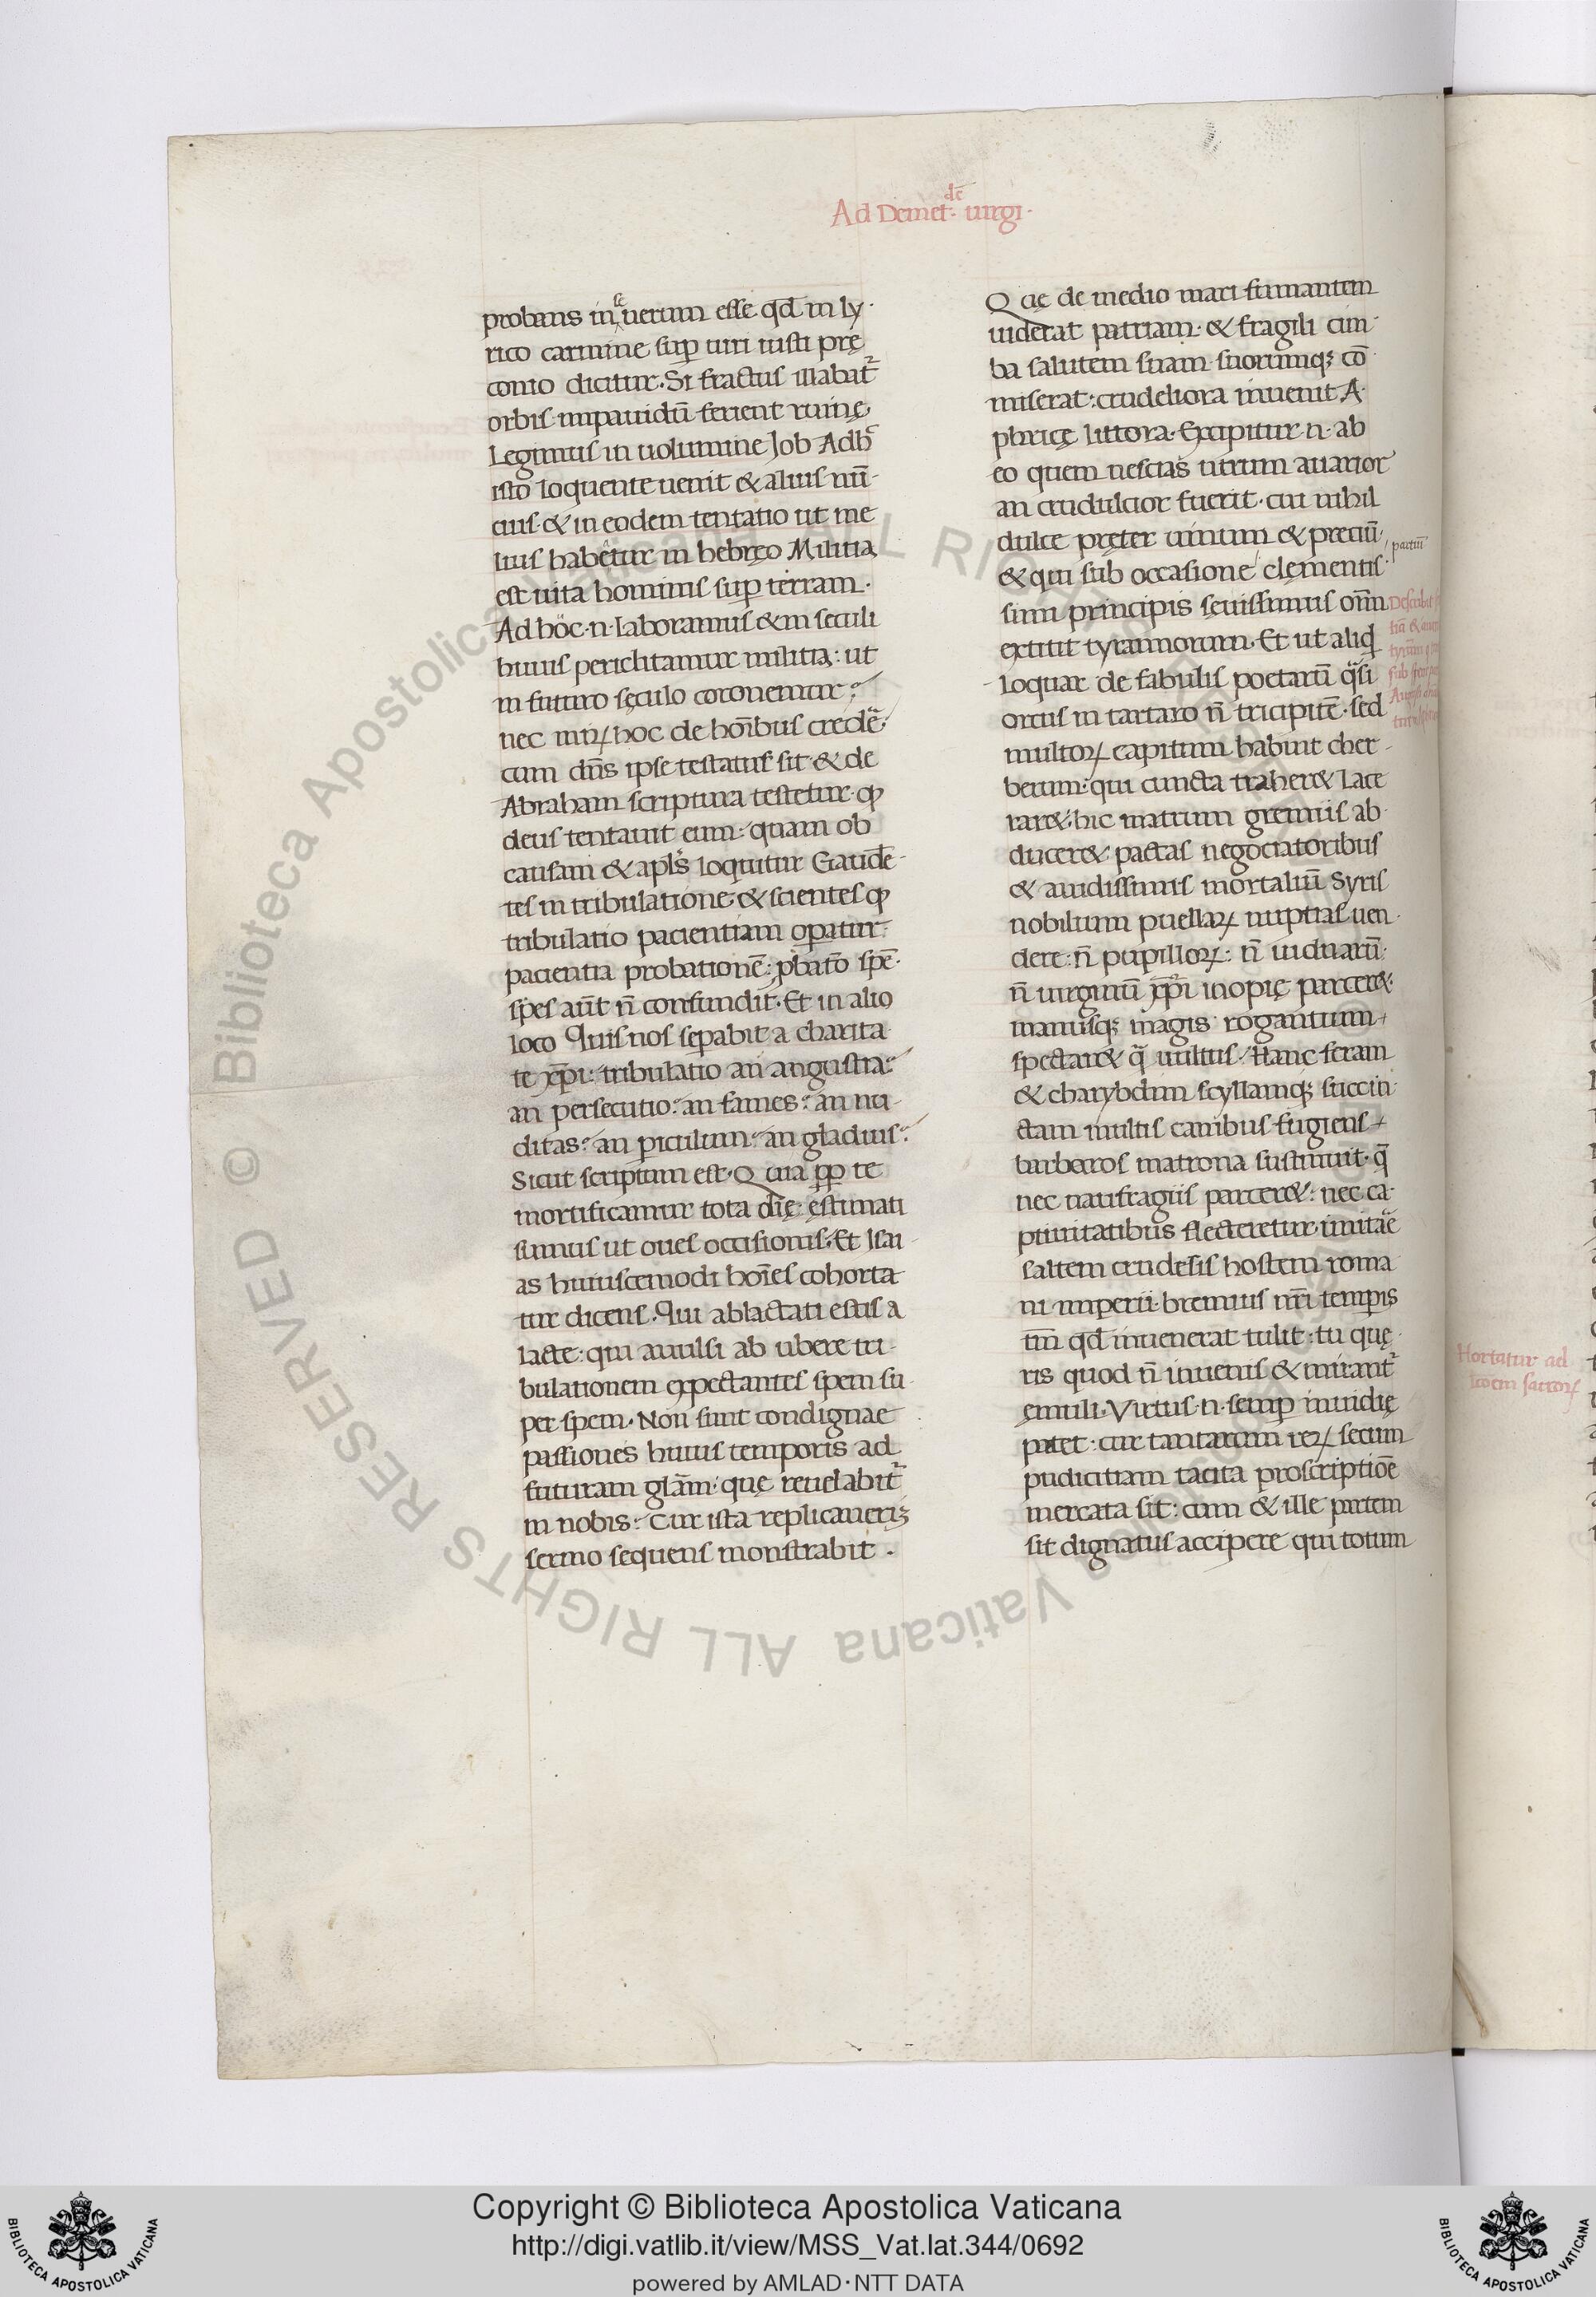 Ad Demet. de uirgi.
probans in se uerum esse qđ in ly
rico carmine suꝑ uiri iusti pręͅ
conio dicitur. Si fractus illabat᷑
orbis impauidū ferient ruinę
Legimus in uolumine Job Adhͨ
isto loquente uenit & alius nū
cius. & in eodem tentatio ut me
lius habetur in hebręo Militia
est uita hominis suꝑ terram.
Ad hoc .n. laboramus & in seculi
huius periclitamur militia: ut
in futuro sęculo coronemur.
nec miꝝ hoc de hoībus credē.
cum dn̄s ipse testatus sit. & de
Abraham scriptura testetur. ꝙ
deus tentauit eum: quam ob
causam & apl̄s loquitur Gaudē
tes in tribulatione & scientes ꝙ
tribulatio pacientiam oꝑatur.
pacientia probationē: ꝓbatō spē.
spes aūt n̄ confundit. Et in alio
loco Quis nos seꝑabit a charita
te xp̄i: tribulatio an angustia:
an persecutio: an fames: an nu
ditas: an ꝑiculum: an gladius:
Sicut scriptum est. Quia ꝓꝑ te
mortificamur tota die ęstimati
sumus ut oues occisionis. Et Isai
as huiuscemodi hoīes cohorta
tur dicens. Qui ablactati estis a
lacte: qui auulsi ab ubere tri
bulationem expectantes spem su
per spem. Non sunt condignae
passiones huius temporis ad
futuram glām. quę reuelabit᷑
in nobis. Cur ista replicauerim
sermo sequens monstrabit.
Quę de medio mari fumantem
uiderat patriam. & fragili cim
ba salutem suam suorumqꝫ cō
miserat: crudeliora inuenit A
phricę littora. Excipitur .n. ab
eo quem nescias utrum auarior
an crudelior fuerit. cui nihil
dulce pręter uinum & preciū.
& qui sub occasione clęmentis
simi principis sęuissimus oīm
extitit tyrannorum. Et ut aliqđ
loquar de fabulis poetarū q̄si
orcus in tartaro n̄ tricipitē. sed
multoꝝ capitum habuit cher
berum. qui cuncta traher& lace
rar&. hic matrum gremiis ab
ducer& pactas negociatoribus
& auidissimis mortaliū Syris
nobilium puellaꝝ nuptias uen
dere: n̄ pupilloꝝ: n̄ uiduarū.
n̄ uirginū xp̄i inopię parcer&.
manusqꝫ magis rogantium
spectar& q̄ uultus. Hanc feram
& charybdim scyllamqꝫ succin
ctam multis canibus fugiens
barbaros matrona sustinuit. q̄
nec naufragiis parcer&: nec ca
ptiuitatibus flecteretur. imitāe
saltem crudelis hostem roma
ni imperii. bremius nr̄i tempis
tm̄ qđ inuenerat tulit: tu quę
ris quod n̄ inuenis & mirant᷑
ęmuli. Virtus .n. semꝑ inuidię
patet: cur tantarum reꝝ secum
pudicitiam tacita proscriptiōe
mercata sit: cum & ille partem
sit dignatus accipere qui totum
partiū
Hortatur ad
Copyright © Biblioteca Apostolica Vaticana
http://digi.vatlib.it/view/MSS_Vat.lat.344/0692
powered by AMLAD·NTT DATA
BIBLIOTECA APOSTOLICA VATICANA
BIBLIOTECA APOSTOLICA VATICANA
© Biblioteca Apostolica Vaticana ALL RIGHTS RESERVED
© Biblioteca Apostolica Vaticana ALL RIGHTS RESERVED